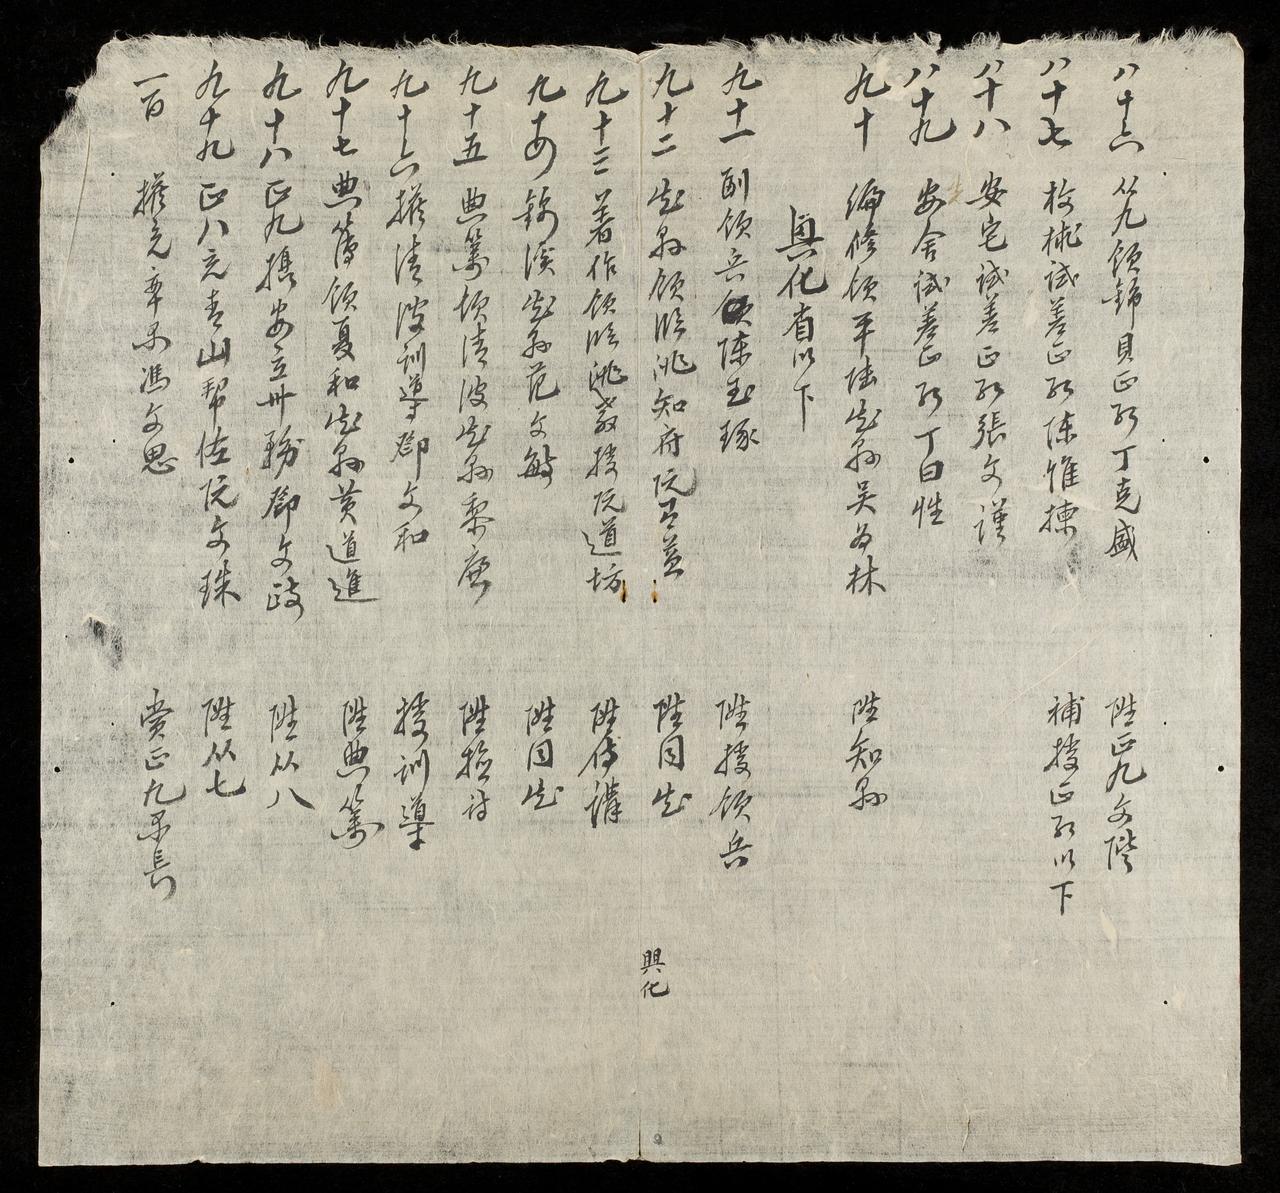 八十六 从九領錦貝正队丁克盛 陞正九文階
八十七 枚楸試差正队陳惟揀 補授正队以下
八十八 安宅試差正队張文謹
八十九 安舍試差正队丁曰性
九十 編修領平陸知縣吳多林 陞知縣
興化省以下
九十一 副領兵領陳玉琢 陞授領兵
九十二 知縣領臨洮知府阮益 陞同知
九十三 著作領臨洮教授阮道坊 陞侍講
九十四 錦溪知縣范文敏 陞同知
九十五 典籍領清波知縣黎 陞檢討
九十六 擬清波訓導鄧文和 授訓導
九十七 典簿領夏和知縣黄道進 陞典籍
九十八 正九攝安立州務鄧文政 陞从八
九十九 正八充青山幇佐阮文珠 陞从七
一百 擬充率隊馮文思 賞正九隊長
興化